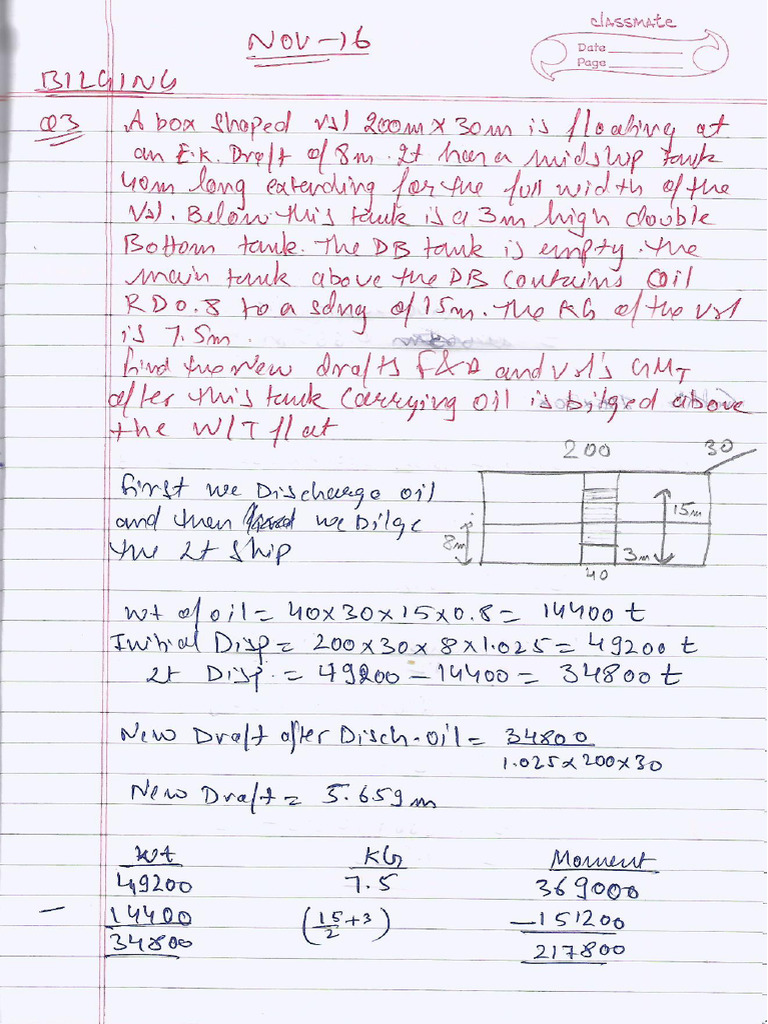 classmate
Date
Page
NOV-16
BILGING
Q3 A box shaped vsl 200m x 30m is floating at
an E.K. Draft of 8m. It has a midship tank
40m long extending for the full width of the
vsl. Below this tank is a 3m high double
Bottom tank. The DB tank is empty. The
main tank above the DB contains oil
RD 0.8 to a sdng of 15m. The KG of the vsl
is 7.5m.
find the New drafts F&A and vsl's GMT
after this tank carrying oil is bilged above
the W/T flat
first we Discharge oil
and then we Bilge
the It ship
200 30
8m 15m
3m
40
wt of oil = 40x30x15x0.8 = 14400 t
Initial Disp = 200x30x8x1.025 = 49200 t
It Disp. = 49200 - 14400 = 34800 t
New Draft after Disch. oil = 34800
1.025x200x30
New Draft = 5.659m
Wt KG Moment
49200 7.5 369000
- 14400 (15/2+3) -151200
34800 217800